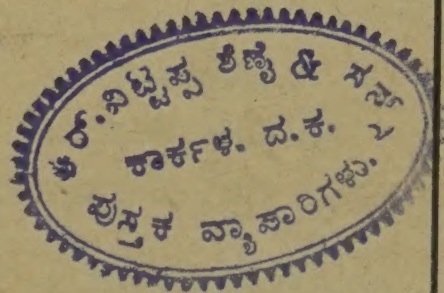 ಆರ್. ವಿಟ್ಟಪ್ಪ ಶೆಣೈ & ಸನ್ಸ್
ಕಾರ್ಕಳ. ದ.ಕ.
ಪುಸ್ತಕ ವ್ಯಾಪಾರಿಗಳು.